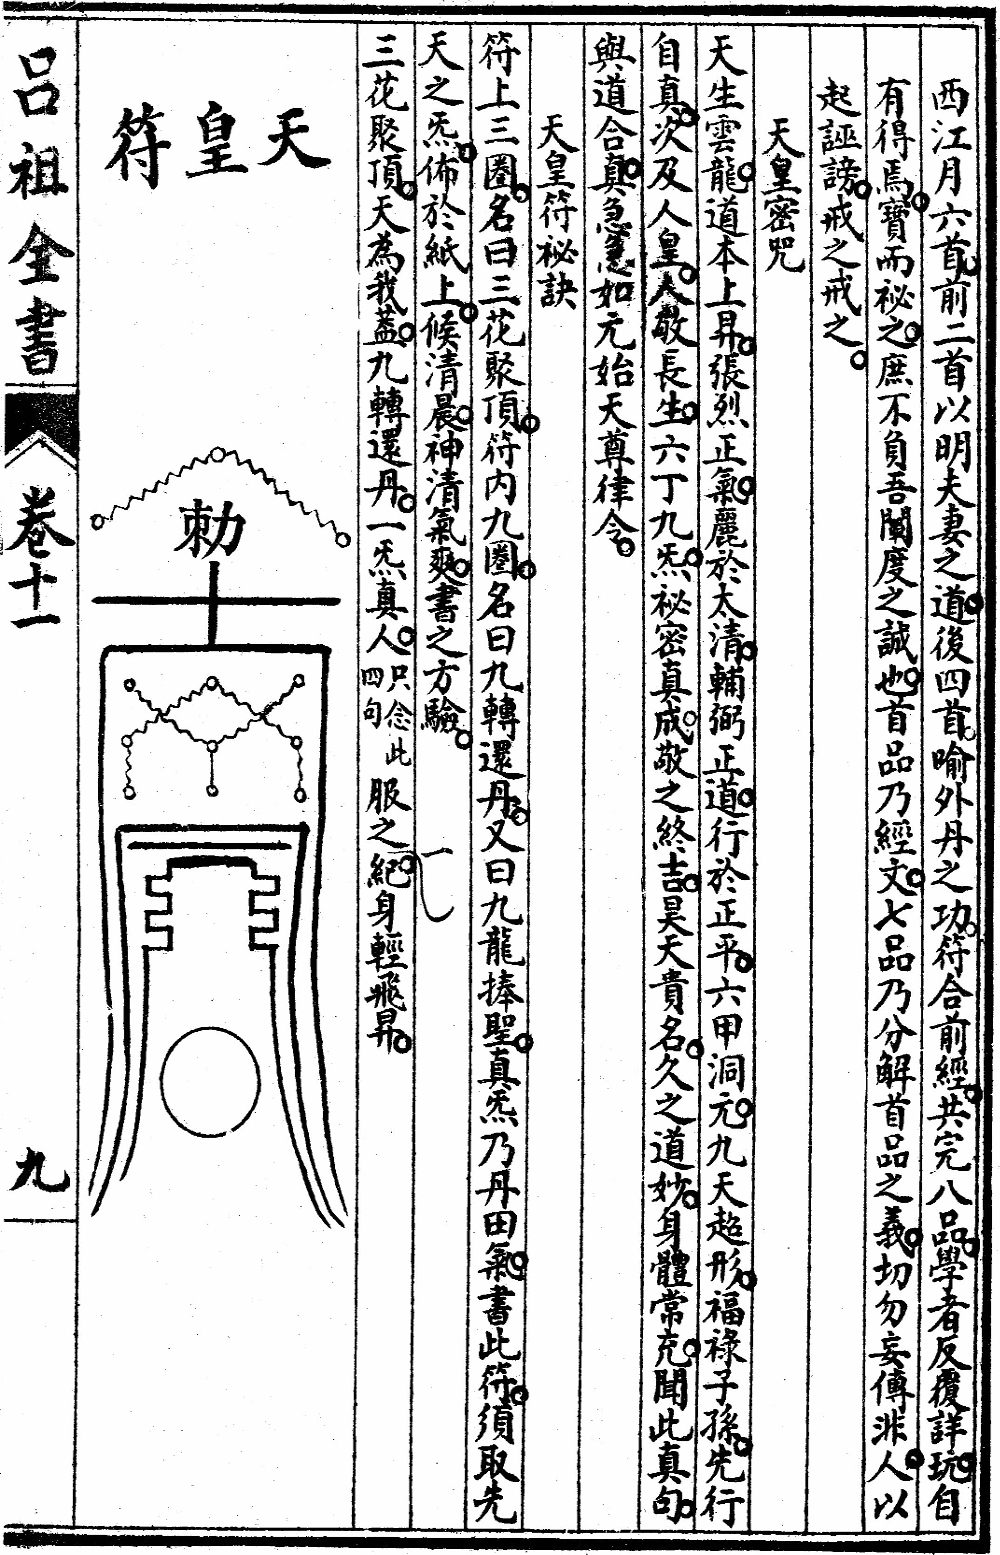 西江月六首前二首以明夫妻之道後四首喻外丹之功符合前經共完八品學者反覆詳玩自
有得焉寶而祕之庶不負吾闡度之誠也首品乃經文七品乃分解首品之義切勿妄傳非人以
起誣謗戒之戒之
天皇密咒
天生雲龍道本上昇張烈正氣麗於太清輔弼正道行於正平六甲洞元九天超形福祿子孫先行
自真次及人皇人敬長生六丁九炁祕密真成敬之終吉昊天貴名久之道妙身體常充聞此真句
與道合真急急如元始天尊律令
天皇符祕訣
符上三圈名曰三花聚頂符內九圈名曰九轉還丹又曰九龍捧聖真炁乃丹田氣書此符須取先
天之炁佈於紙上候清晨神清氣爽書之方驗
三花聚頂天為我蓋九轉還丹一炁真人只念此四句服之一紀身輕飛昇
天皇符
勅
呂祖全書
卷十一
九